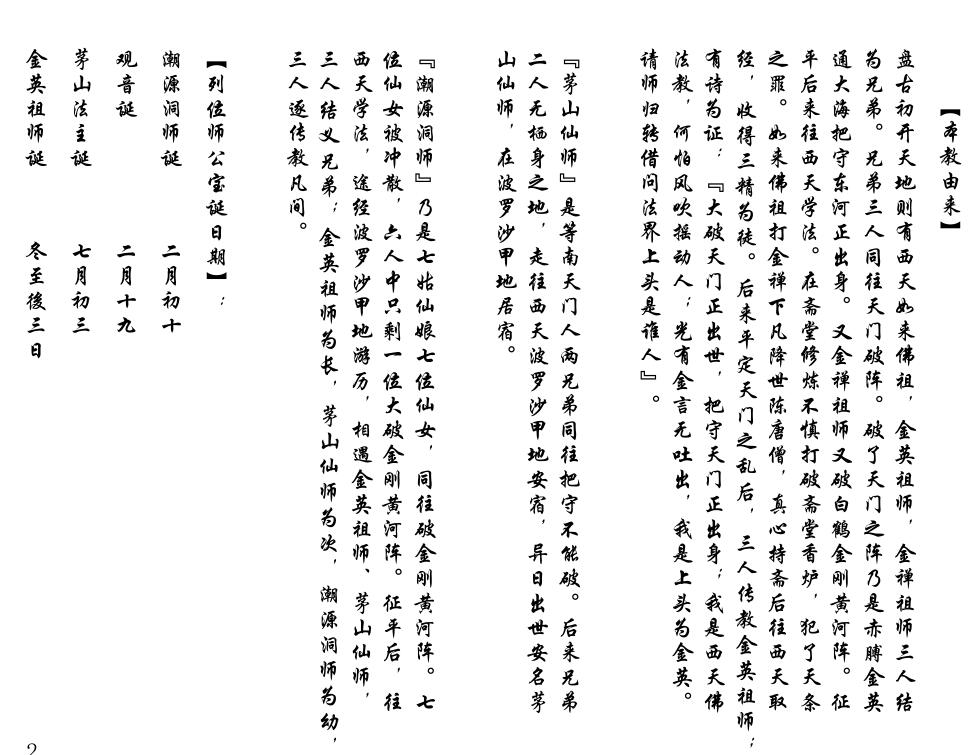 【本教由来】
盘古初开天地则有西天如来佛祖，金英祖师，金禅祖师三人结
为兄弟。兄弟三人同往天门破阵。破了天门之阵乃是赤膊金英
通大海把守东河正出身。又金禅祖师又破白鹤金刚黄河阵。征
平后来往西天学法。在斋堂修炼不慎打破斋堂香炉，犯了天条
之罪。如来佛祖打金禅下凡降世陈唐僧，真心持斋后往西天取
经，收得三精为徒。后来平定天门之乱后，三人传教金英祖师；
有诗为证；『大破天门正出世，把守天门正出身；我是西天佛
法教，何怕风吹摇动人；光有金言无吐出，我是上头为金英。
请师归转借问法界上头是谁人』。
『茅山仙师』是等南天门人两兄弟同往把守不能破。后来兄弟
二人无栖身之地，走往西天波罗沙甲地安宿，异日出世安名茅
山仙师，在波罗沙甲地居宿。
『潮源洞师』乃是七姑仙娘七位仙女，同往破金刚黄河阵。七
位仙女被冲散，六人中只剩一位大破金刚黄河阵。征平后，往
西天学法，途经波罗沙甲地游历，相遇金英祖师、茅山仙师，
三人结义兄弟；金英祖师为长，茅山仙师为次，潮源洞师为幼，
三人逐传教凡间。
【列位师公宝诞日期】；
潮源洞师诞 二月初十
观音诞 二月十九
茅山法主诞 七月初三
金英祖师诞 冬至後三日
2